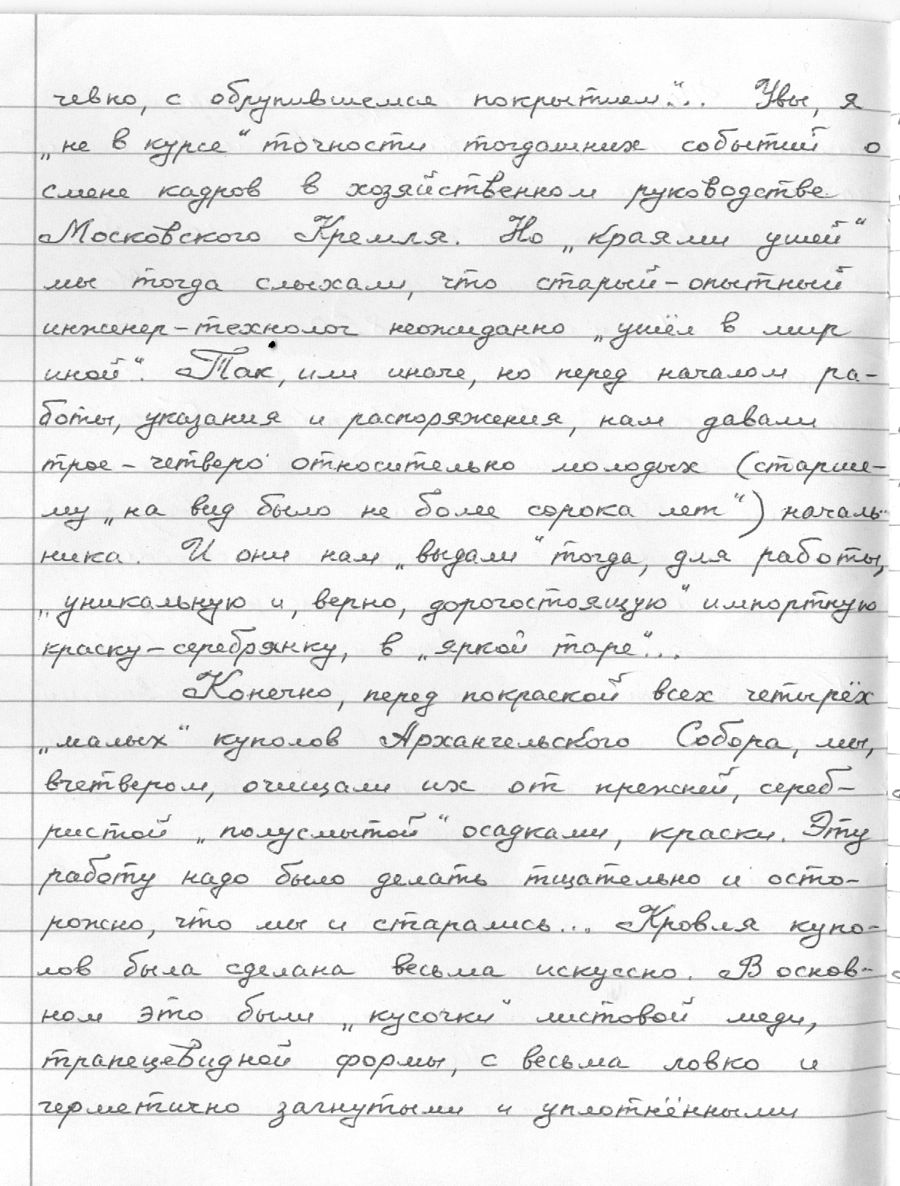 чевно, с обрупившемся покрытием"... Увы, я
„не в курсе" точности тогдашних событий о
смене кадров в хозяйственном руководстве
Московского Кремля. Но „краями ушей"
мы тогда слыхали, что старый-опытный
инженер-технолог неожиданно „ушёл в мир
иной". Так, или иначе, но перед началом ра-
боты, указания и распоряжения, нам давали
трое-четверо относительно молодых (старше-
му „на вид было не более сорока лет") началь-
ника. И они нам „выдали" тогда, для работы,
„уникальную и, верно, дорогостоящую" импортную
краску-серебрянку, в „яркой таре"...
Конечно, перед покраской всех четырёх
„малых" куполов Архангельского Собора, мы,
вчетвером, очищали их от прежней, сереб-
ристой „полусмытой" осадками, краски. Эту
работу надо было делать тщательно и осто-
рожно, что мы и старались... Кровля купо-
лов была сделана весьма искуссно. В основ-
ном это были „кусочки" листовой меди,
трапецевидной формы, с весьма ловко и
герметично загнутыми и уплотнёнными